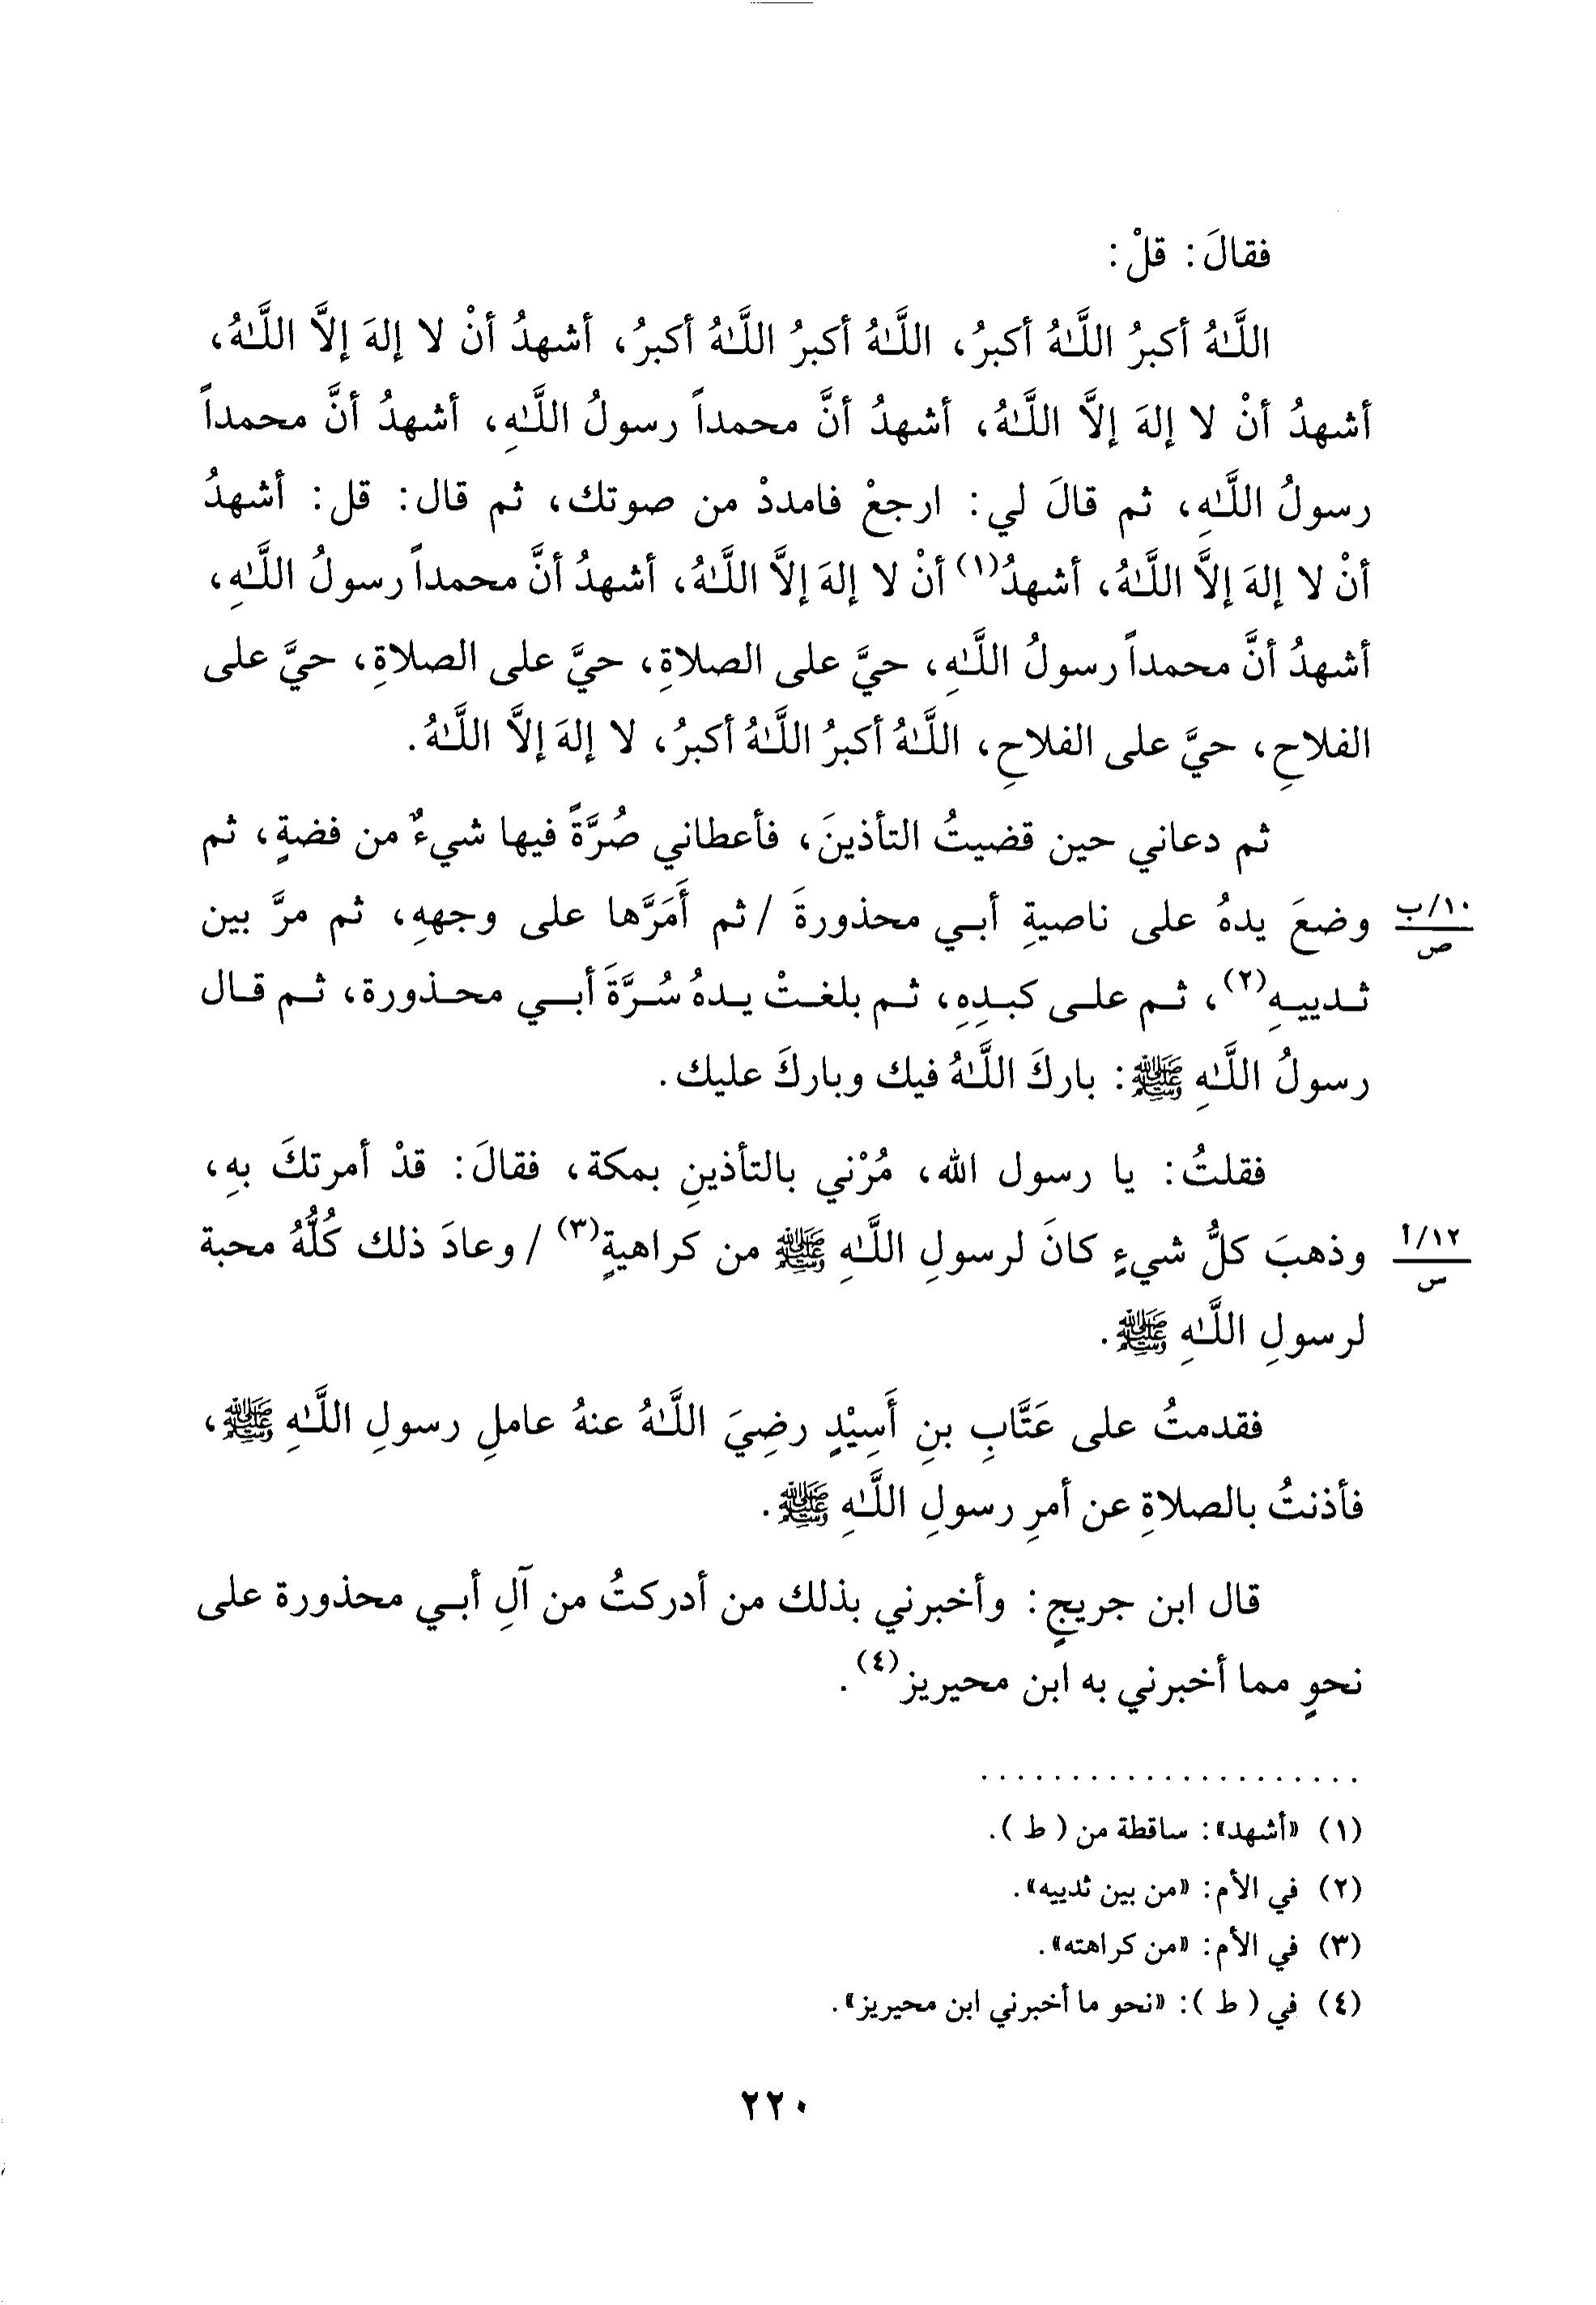 فقالَ: قلْ:
اللَّهُ أكبرُ اللَّهُ أكبرُ، اللَّهُ أكبرُ اللَّهُ أكبرُ، أشهدُ أنْ لا إلهَ إلاَّ اللَّهُ،
أشهدُ أنْ لا إلهَ إلاَّ اللَّهُ، أشهدُ أنَّ محمداً رسولُ اللَّهِ، أشهدُ أنَّ محمداً
رسولُ اللَّهِ، ثم قالَ لي: ارجعْ فامددْ من صوتك، ثم قال: قل: أشهدُ
أنْ لا إلهَ إلاَّ اللَّهُ، أشهدُ(١) أنْ لا إلهَ إلاَّ اللَّهُ، أشهدُ أنَّ محمداً رسولُ اللَّهِ،
أشهدُ أنَّ محمداً رسولُ اللَّهِ، حيَّ على الصلاةِ، حيَّ على الصلاةِ، حيَّ على
الفلاحِ، حيَّ على الفلاحِ، اللَّهُ أكبرُ اللَّهُ أكبرُ، لا إلهَ إلاَّ اللَّهُ.
ثم دعاني حين قضيتُ التأذينَ، فأعطاني صُرَّةً فيها شيءٌ من فضةٍ، ثم
وضعَ يدهُ على ناصيةِ أبي محذورةَ / ثم أَمَرَّها على وجههِ، ثم مرَّ بين
١٠/ب
ص
ثدييهِ(٢)، ثم على كبدِهِ، ثم بلغتْ يدهُ سُرَّةَ أبي محذورة، ثم قال
رسولُ اللَّهِ ﷺ: باركَ اللَّهُ فيك وباركَ عليك.
فقلتُ: يا رسول الله، مُرْني بالتأذينِ بمكة، فقالَ: قدْ أمرتكَ بهِ،
وذهبَ كلُّ شيءٍ كانَ لرسولِ اللَّهِ ﷺ من كراهيةٍ(٣) / وعادَ ذلك كُلُّهُ محبة
١٢/أ
س
لرسولِ اللَّهِ ﷺ.
فقدمتُ على عَتَّابِ بنِ أَسِيْدٍ رضِيَ اللَّهُ عنهُ عاملِ رسولِ اللَّهِ ﷺ،
فأذنتُ بالصلاةِ عن أمرِ رسولِ اللَّهِ ﷺ.
قال ابن جريجٍ: وأخبرني بذلك من أدركتُ من آلِ أبي محذورة على
نحوٍ مما أخبرني به ابن محيريز(٤).
(١) «أشهد»: ساقطة من ( ط ).
(٢) في الأم: «من بين ثدييه».
(٣) في الأم: «من كراهته».
(٤) في ( ط ): «نحو ما أخبرني ابن محيريز».
٢٢٠